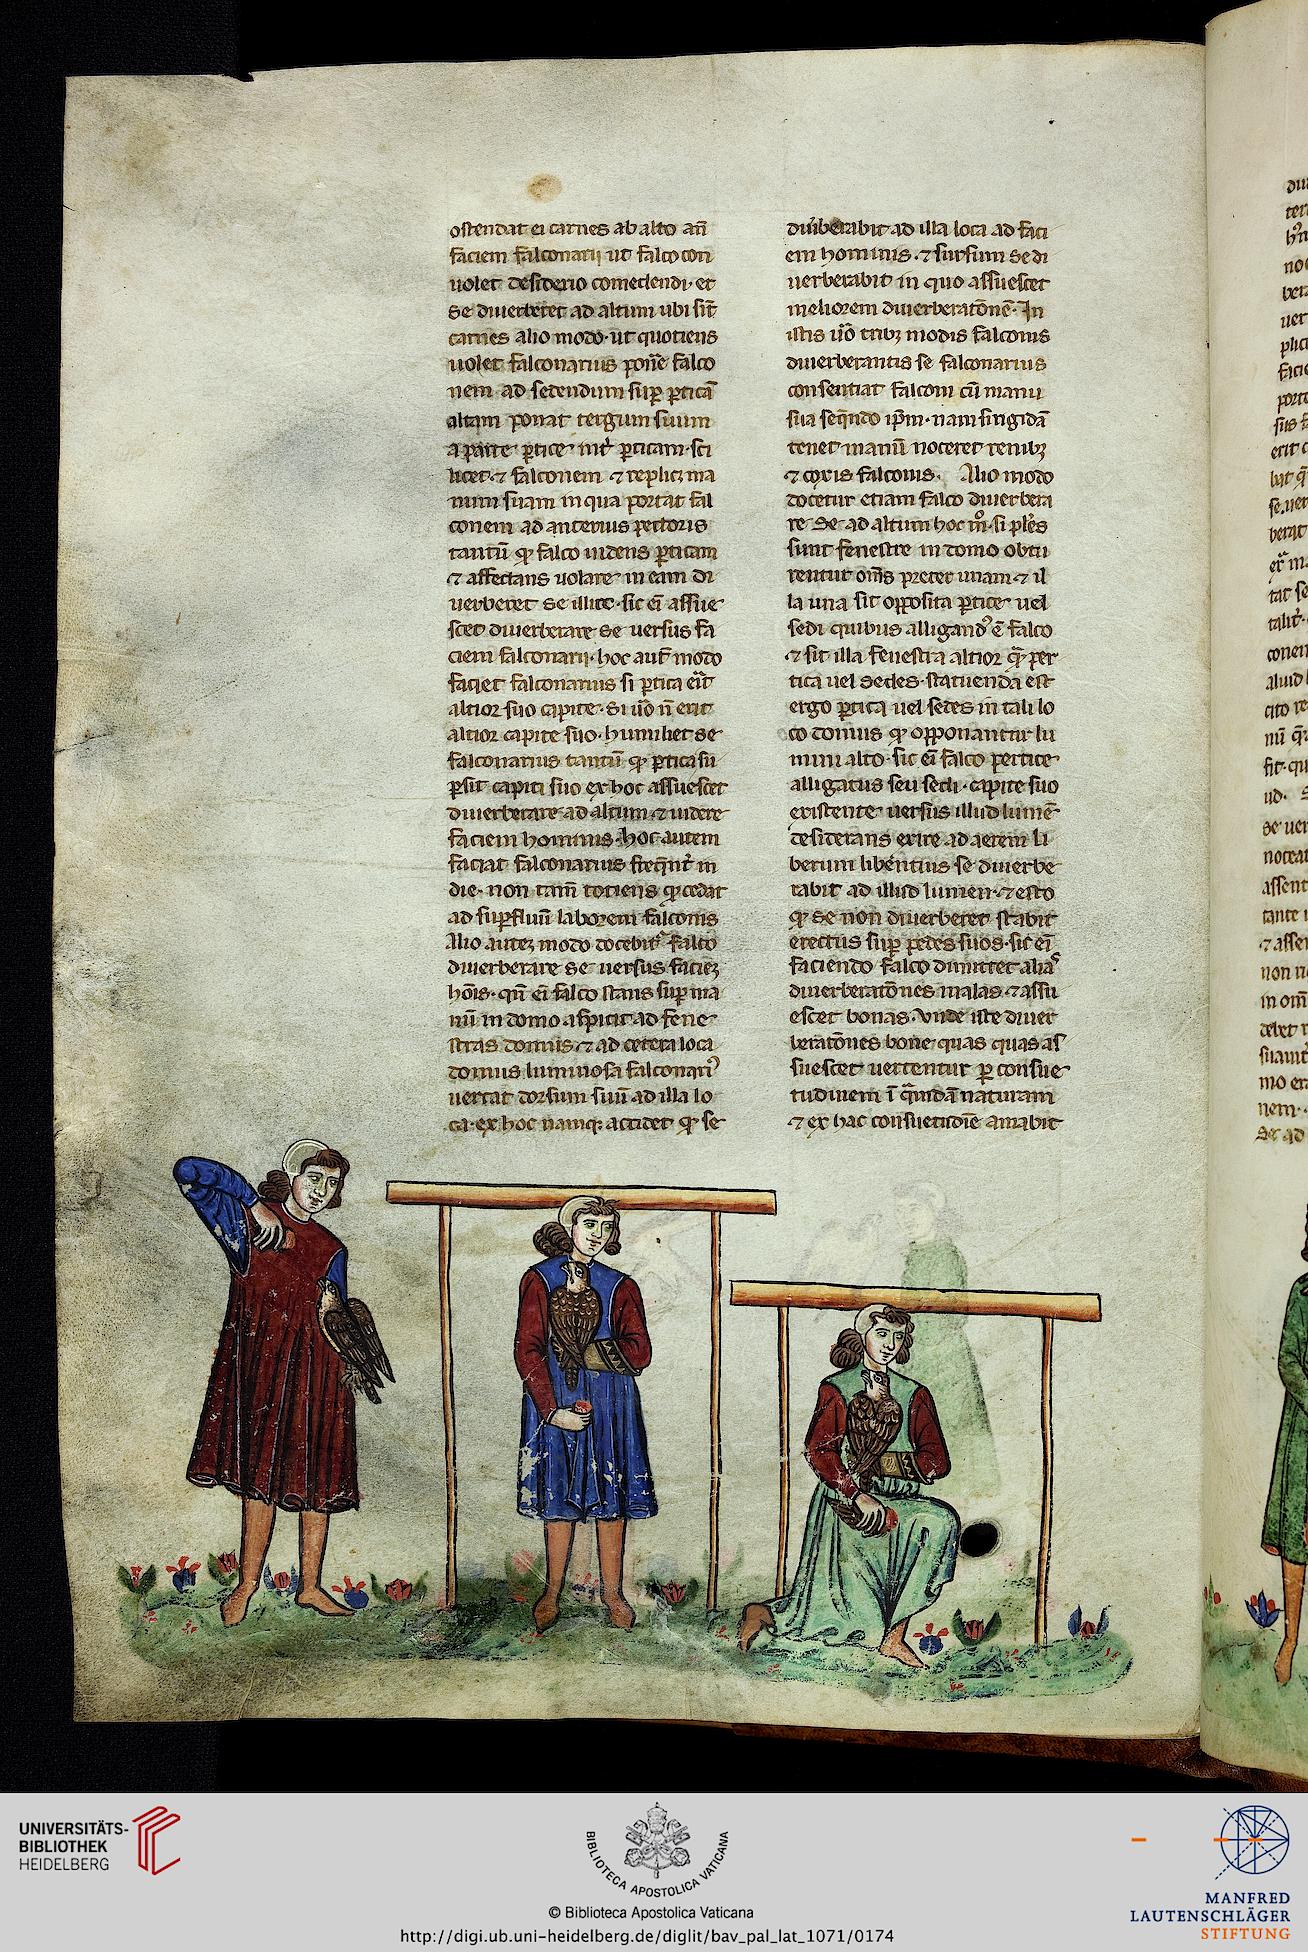 ostendat ei carnes ab alto an̄
faciem falconarij ut falco con
uolet desiderio comedendi et
se diuerberet ad altum ubi sūt
carnes alio modo. ut quotiens
uolet falconarius pone᷑ falco
nem ad sedendum sup̱ p̱ticā
altam ponat tergum suum
a parte p̱tice int᷑ p̱ticam. sci
licet ⁊ falconem ⁊ replicꝫ ma
num suam in qua portat fal
conem ad anterius pectoris
tantū ꝙ falco uidens p̱ticam
⁊ affectans uolare in eam di
uerberet se illuc. sic eī assue
scet diuerberare se uersus fa
ciem falconarij. hoc aut̄ modo
faciet falconarius si p̱tica erit
altior suo capite. Si ūo n̄ erit
altior capite suo. humiliet se
falconarius tantū ꝙ p̱tica su
p̱sit capiti suo ex hoc assuescet
diuerberare ad altum ⁊ uidere
faciem hominis. hoc autem
faciat falconarius freq̄nt᷑ in
die. non tam̄ totiens ꝙ cedat
ad sup̱fluū laborem falconis
Alio autem modo docebit᷑ falco
diuerberare se uersus faciem
hōīs. qn̄ eī falco stans sup̱ ma
nū in domo aspicit ad fene
stras domus. ⁊ ad cetera loca
domus luminosa falconari᷒
uertat dorsum suū ad illa lo
ca. ex hoc namqꝫ accidet ꝙ se
diu᷑berabit ad illa loca ad faci
em hominis. ⁊ sursum se di
uerberabit in quo assuescet
meliorem diuerberatōnē. In
istis ūo tribꝫ modis falconis
diuerberantis se falconarius
consentiat falconi cū manu
sua seq̄ndo ip̄m. nam si rigidā
tenet manū noceret renibꝫ
⁊ coxis falconis. Alio modo
docetur etiam falco diuerbera
re se ad altum hoc mͦ. si plēs
sunt fenestre in domo obtu
rentur om̄s preter unam ⁊ il
la una sit opposita p̱tice uel
sedi quibus alligand᷒ ē falco
⁊ sit illa fenestra altior q̄ꝫ per
tica uel sedes. statuenda est
ergo p̱tica uel sedes in tali lo
co domus ꝙ opponantur lu
mini alto. sic eī falco pertice
alligatus seu sedi. capite suo
existente uersus illud lumē
desiderans exire ad aerem li
berum libentius se diuerbe
rabit ad illud lumen. ⁊ esto
ꝙ se non diuerberet stabit
erectus sup̱ pedes suos. sic eī
faciendo falco dimittet alias
diuerberatōnes malas. ⁊ assu
escet bonas. Vnde iste diuer
beratōnes bone quas quas as
suescet uertentur p̱ consue
tudinem ī q̄ndā naturam
⁊ ex hac consuetudīe amabit
UNIVERSITÄTS-
BIBLIOTHEK
HEIDELBERG
BIBLIOTECA APOSTOLICA VATICANA
© Biblioteca Apostolica Vaticana
http://digi.ub.uni-heidelberg.de/diglit/bav_pal_lat_1071/0174
MANFRED
LAUTENSCHLÄGER
STIFTUNG